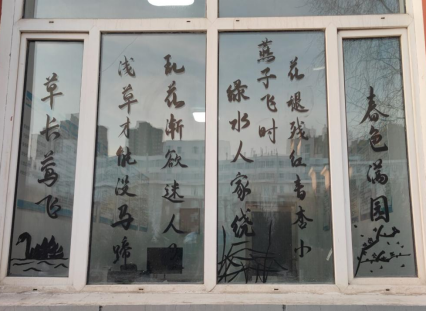 春色满园
花褪残红青杏小
燕子飞时
绿水人家绕
乱花渐欲迷人
浅草才能没马蹄
草长莺飞